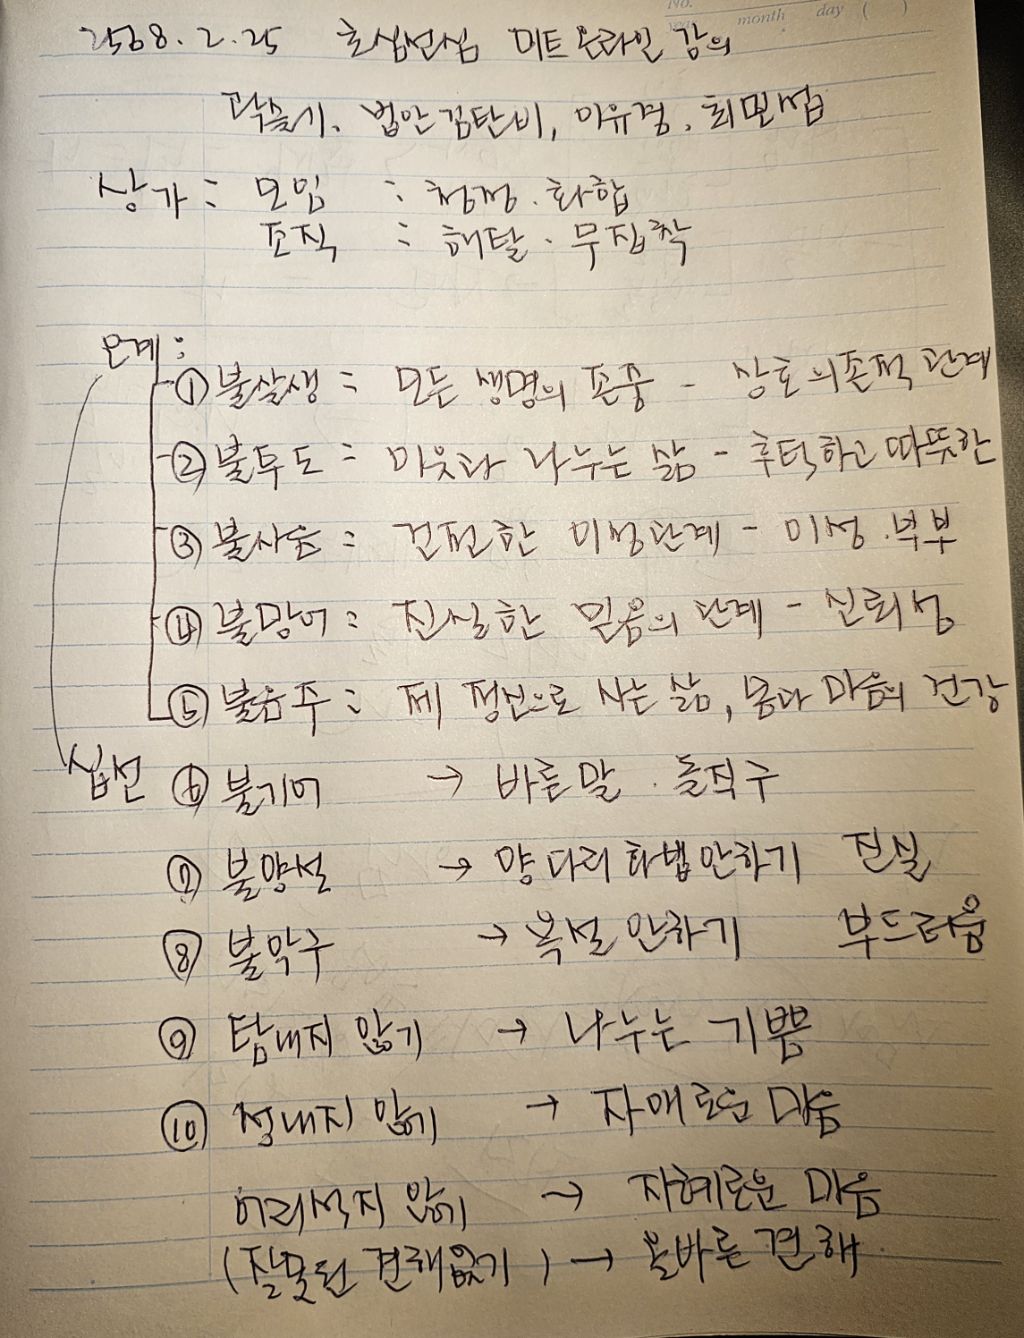 No.
year month day ( )
2568. 2. 25 초심선심 미트 온라인 강의
곽슬기. 법안김단비, 이유경. 최민섭
상가 : 모임 : 청정. 화합
조직 : 해탈 · 무집착
오계 :
① 불살생 : 모든 생명의 존중 - 상호의존적 관계
② 불투도 : 이웃과 나누는 삶 - 후덕하고 따뜻한
③ 불사음 : 건전한 이성관계 - 이성.부부
④ 불망어 : 진실한 믿음의 관계 - 신뢰성
⑤ 불음주 : 제 정신으로 사는 삶, 몸과 마음의 건강
십선 ⑥ 불기어 → 바른말 . 돌직구
⑦ 불양설 → 양다리 화법안하기 진실
⑧ 불악구 → 욕설 안하기 부드러움
⑨ 탐내지 않기 → 나누는 기쁨
⑩ 성내지 않기 → 자애로운 마음
어리석지 않기 → 지혜로운 마음
(잘못된 견해없기) → 올바른 견해